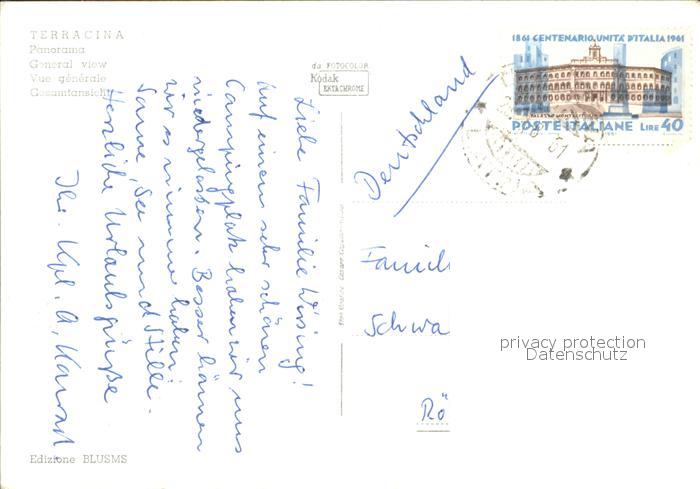 TERRACINA
Panorama
General view
Vue générale
Gesamtansicht
da FOTOCOLOR
Kodak
EKTACHROME
1861 CENTENARIO UNITA' D'ITALIA 1961
PALAZZO MONTECITORIO
POSTE ITALIANE LIRE 40
Deutschland
Liebe Familie Wirsing!
Auf einem sehr schönen
Campingplatz haben wir uns
niedergelassen. Besser können
wir es nimmer haben.
Sonne, See und Stille.
Herzliche Urlaubsgrüße
Ihr Kpl. A.
Famil
Schwa
Rö
privacy protection
Datenschutz
Edizione BLUSMS